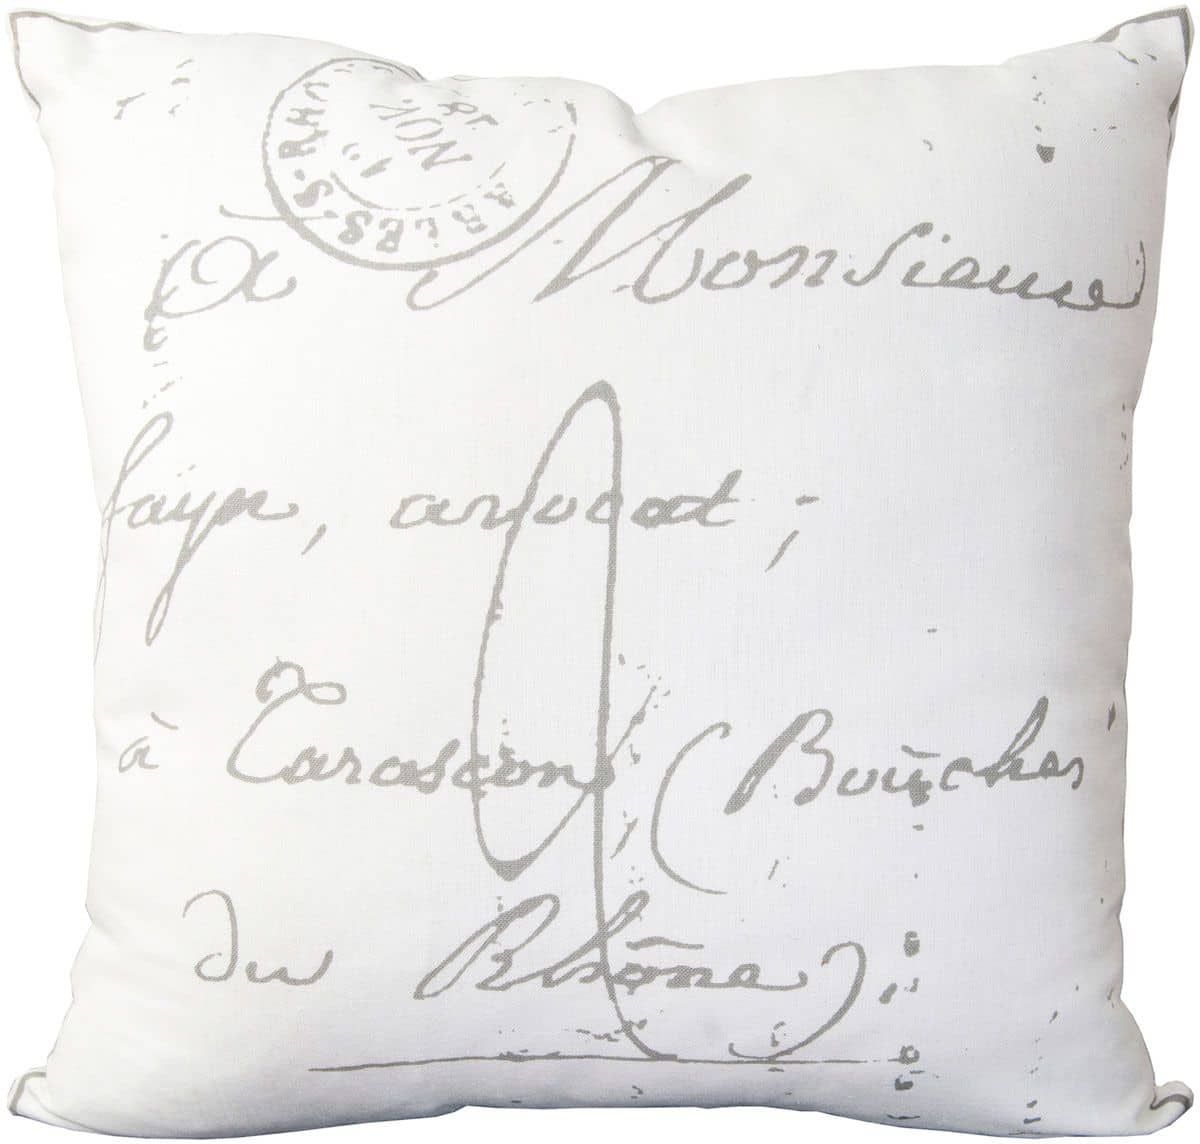 ARLES-S-RHO
NOV
A Monsieur
fayn, avocat ;
à Tarascon (Bouches
du Rhône)